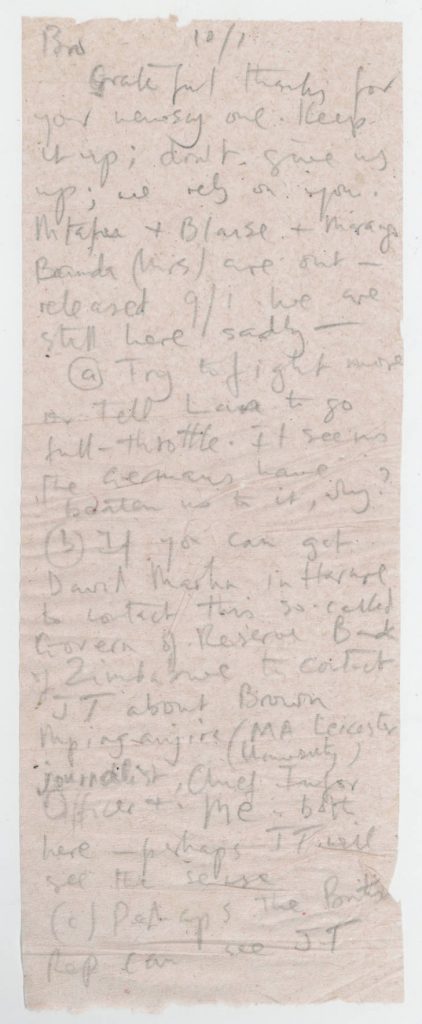 Bro 10/1
Grateful thanks for
your newsy one. Keep
it up; don't give us
up; we rely on you.
Mtafu + Blaise +
Banda (Mrs) are out —
released 9/1. We are
still here sadly —
(a) Try to fight more
or tell Lan to go
full-throttle. It seems
the Germans have
beaten us to it, why?
(b) If you can get
David Martin in Harare
to contact this so-called
Govern of Reserve Bank
of Zimbabwe to contact
JT about Brown
Mpinganjira (MA Leicester
University)
journalist, Chief Infor
Officer + me. both
here — perhaps JT will
see the sense
(c) Perhaps the British
Rep can see JT